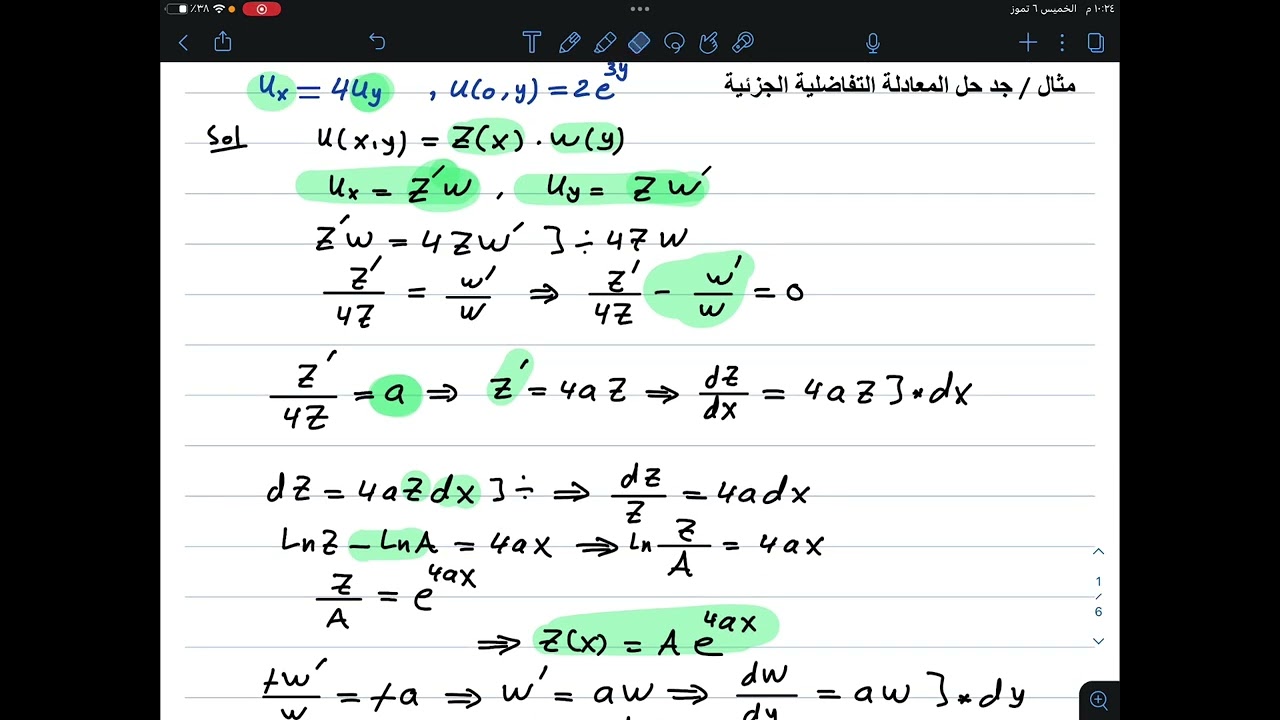 ١٠:٢٤ م الخميس ٦ تموز
٪٣٨
مثال / جد حل المعادلة التفاضلية الجزئية
Ux = 4Uy , U(0,y) = 2e^3y
Sol U(x,y) = Z(x) . W(y)
Ux = Z'W , Uy = ZW'
Z'W = 4ZW' ] ÷ 4ZW
Z'/4Z = W'/W ⇒ Z'/4Z - W'/W = 0
Z'/4Z = a ⇒ Z' = 4aZ ⇒ dZ/dx = 4aZ ] * dx
dZ = 4aZdx ] ÷ ⇒ dZ/Z = 4adx
LnZ - LnA = 4ax ⇒ ln Z/A = 4ax
Z/A = e^4ax
⇒ Z(x) = A e^4ax
1
/
6
+W'/W = +a ⇒ W' = aW ⇒ dW/dy = aW ] * dy